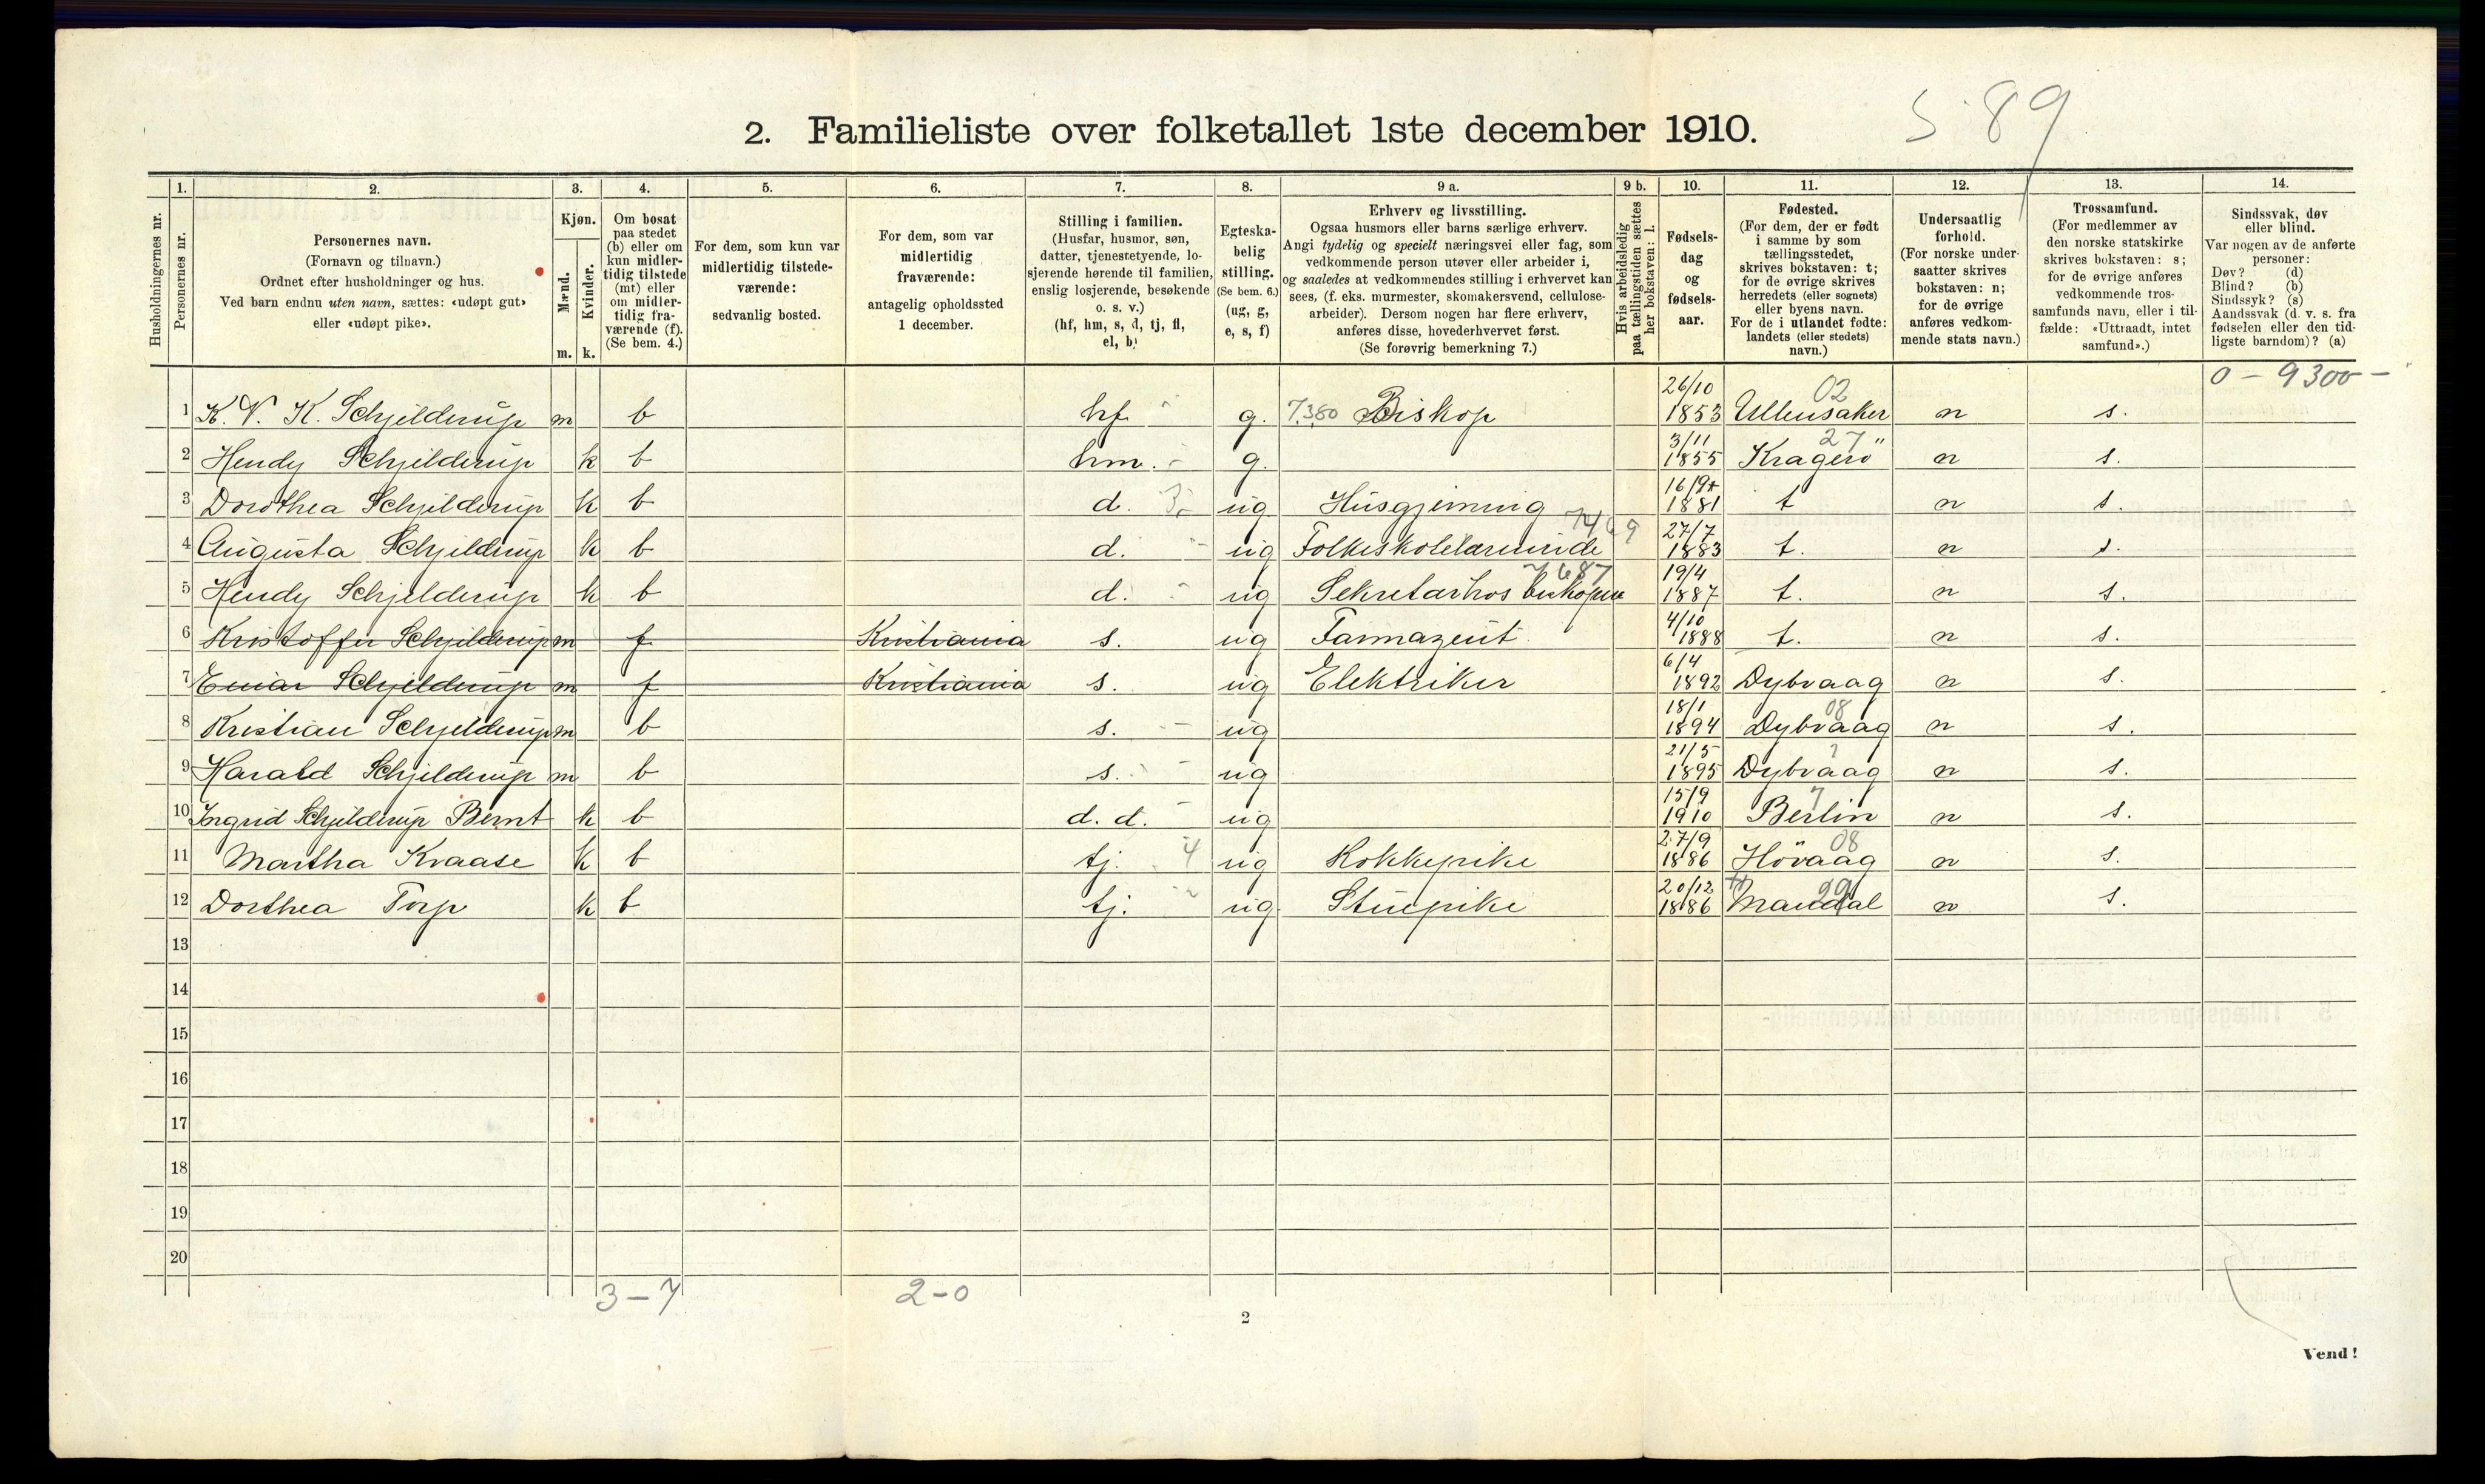 S 89
2. Familieliste over folketallet 1ste december 1910.
Husholdningernes nr.
1. Personernes nr.
2. Personernes navn.
(Fornavn og tilnavn.)
Ordnet efter husholdninger og hus.
Ved barn endnu uten navn, sættes: «udøpt gut»
eller «udøpt pike».
3. Kjøn.
Mænd. m.
Kvinder. k.
4. Om bosat
paa stedet
(b) eller om
kun midler-
tidig tilstede
(mt) eller
om midler-
tidig fra-
værende (f).
(Se bem. 4.)
5. For dem, som kun var
midlertidig tilstede-
værende:
sedvanlig bosted.
6. For dem, som var
midlertidig
fraværende:
antagelig opholdssted
1 december.
7. Stilling i familien.
(Husfar, husmor, søn,
datter, tjenestetyende, lo-
sjerende hørende til familien,
enslig losjerende, besøkende
o. s. v.)
(hf, hm, s, d, tj, fl,
el, b)
8. Egteska-
belig
stilling.
(Se bem. 6.)
(ug, g,
e, s, f)
9 a. Erhverv og livsstilling.
Ogsaa husmors eller barns særlige erhverv.
Angi tydelig og specielt næringsvei eller fag, som
vedkommende person utøver eller arbeider i,
og saaledes at vedkommendes stilling i erhvervet kan
sees, (f. eks. murmester, skomakersvend, cellulose-
arbeider). Dersom nogen har flere erhverv,
anføres disse, hovederhvervet først.
(Se forøvrig bemerkning 7.)
9 b. Hvis arbeidsledig
paa tællingstiden sættes
her bokstaven: l.
10. Fødsels-
dag
og
fødsels-
aar.
11. Fødested.
(For dem, der er født
i samme by som
tællingsstedet,
skrives bokstaven: t;
for de øvrige skrives
herredets (eller sognets)
eller byens navn.
For de i utlandet fødte:
landets (eller stedets)
navn.)
12. Undersaatlig
forhold.
(For norske under-
saatter skrives
bokstaven: n;
for de øvrige
anføres vedkom-
mende stats navn.)
13. Trossamfund.
(For medlemmer av
den norske statskirke
skrives bokstaven: s;
for de øvrige anføres
vedkommende tros-
samfunds navn, eller i til-
fælde: «Uttraadt, intet
samfund».)
14. Sindssvak, døv
eller blind.
Var nogen av de anførte
personer:
Døv? (d)
Blind? (b)
Sindssyk? (s)
Aandssvak (d. v. s. fra
fødselen eller den tid-
ligste barndom)? (a)
0 - 9300 -
1 K. V. K. Schjelderup m b hf g. 7.380 Biskop 26/10 1853 02 Ullensaker n s.
2 Hendy Schjelderup k b hm. g. 3/11 1855 27 Kragerö n s.
3 Dorothea Schjelderup k b d. 3 ug Husgjerning 16/9 1881 t n s.
4 Augusta Schjelderup k b d. ug Folkeskolelærerinde 27/7 1883 t. n s.
5 Hendy Schjelderup k b d. ug Sekretær hos biskopen 7687 19/4 1887 t. n s.
6 Kristoffer Schjelderup m f Kristiania s. ug Farmazeut 4/10 1888 t. n s.
7 Einar Schjelderup m f Kristiania s. ug Elektriker 6/4 1892 Dybvaag n s.
8 Kristian Schjelderup m b s. ug 18/1 1894 08 Dybvaag n s.
9 Harald Schjelderup m b s. ug 21/5 1895 Dybvaag n s.
10 Ingrid Schjelderup Bernt k b d. d. ug 15/9 1910 Berlin n s.
11 Martha Kraase k b tj. 4 ug Kokkepike 27/9 1886 08 Hövaag n s.
12 Dorthea Torp k b tj. ug Stuepike 20/12 1886 Mandal n s.
13
14
15
16
17
18
19
20
3 - 7
2 - 0
2
Vend!